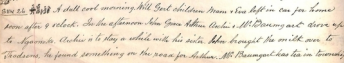 Nov 26 A dull cool morning. Will Gort children Mam & Eva left in car for home
soon after 9 o'clock. In the afternoon John Grace Arthur Archie & Mr Baumgart drove up
to Myamin Archie is to stay a while with his sister. John brought the milk over to
he found something on the road for Arthur. Mr Baumgart has tea in township